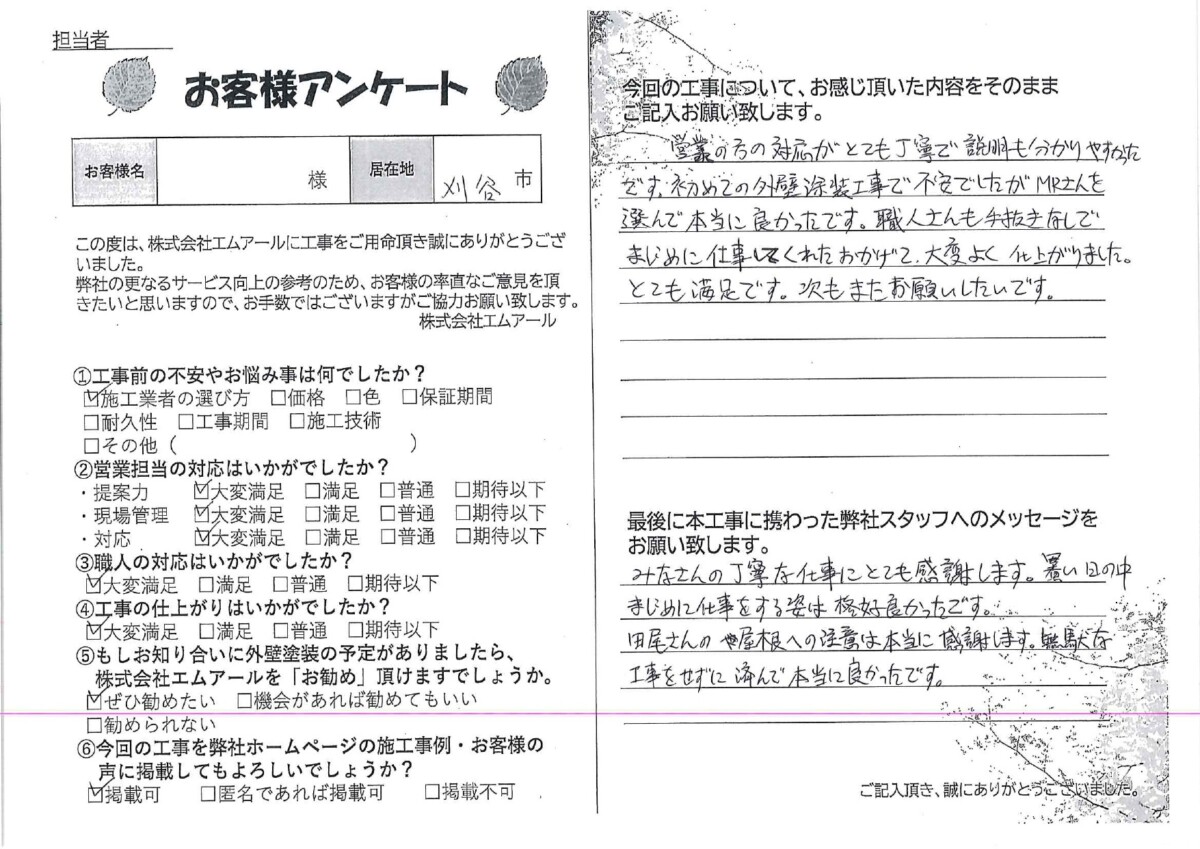 担当者
お客様アンケート
お客様名 様 居在地 刈谷 市
この度は、株式会社エムアールに工事をご用命頂き誠にありがとうござ
いました。
弊社の更なるサービス向上の参考のため、お客様の率直なご意見を頂
きたいと思いますので、お手数ではございますがご協力お願い致します。
株式会社エムアール
①工事前の不安やお悩み事は何でしたか？
☑施工業者の選び方 □価格 □色 □保証期間
□耐久性 □工事期間 □施工技術
□その他（ ）
②営業担当の対応はいかがでしたか？
・提案力 ☑大変満足 □満足 □普通 □期待以下
・現場管理 ☑大変満足 □満足 □普通 □期待以下
・対応 ☑大変満足 □満足 □普通 □期待以下
③職人の対応はいかがでしたか？
☑大変満足 □満足 □普通 □期待以下
④工事の仕上がりはいかがでしたか？
☑大変満足 □満足 □普通 □期待以下
⑤もしお知り合いに外壁塗装の予定がありましたら、
株式会社エムアールを「お勧め」頂けますでしょうか。
☑ぜひ勧めたい □機会があれば勧めてもいい
□勧められない
⑥今回の工事を弊社ホームページの施工事例・お客様の
声に掲載してもよろしいでしょうか？
☑掲載可 □匿名であれば掲載可 □掲載不可
今回の工事について、お感じ頂いた内容をそのまま
ご記入お願い致します。
営業の方の対応がとても丁寧で説明も分かりやすかった
です。初めての外壁塗装工事で不安でしたがMRさんを
選んで本当に良かったです。職人さんも手抜きなしで
まじめに仕事してくれたおかげで、大変よく仕上がりました。
とても満足です。次もまたお願いしたいです。
最後に本工事に携わった弊社スタッフへのメッセージを
お願い致します。
みなさんの丁寧な仕事にとても感謝します。暑い日の中
まじめに仕事をする姿は格好良かったです。
田尾さんの屋根への注意は本当に感謝します。無駄な
工事をせずに済んで本当に良かったです。
ご記入頂き、誠にありがとうございました。